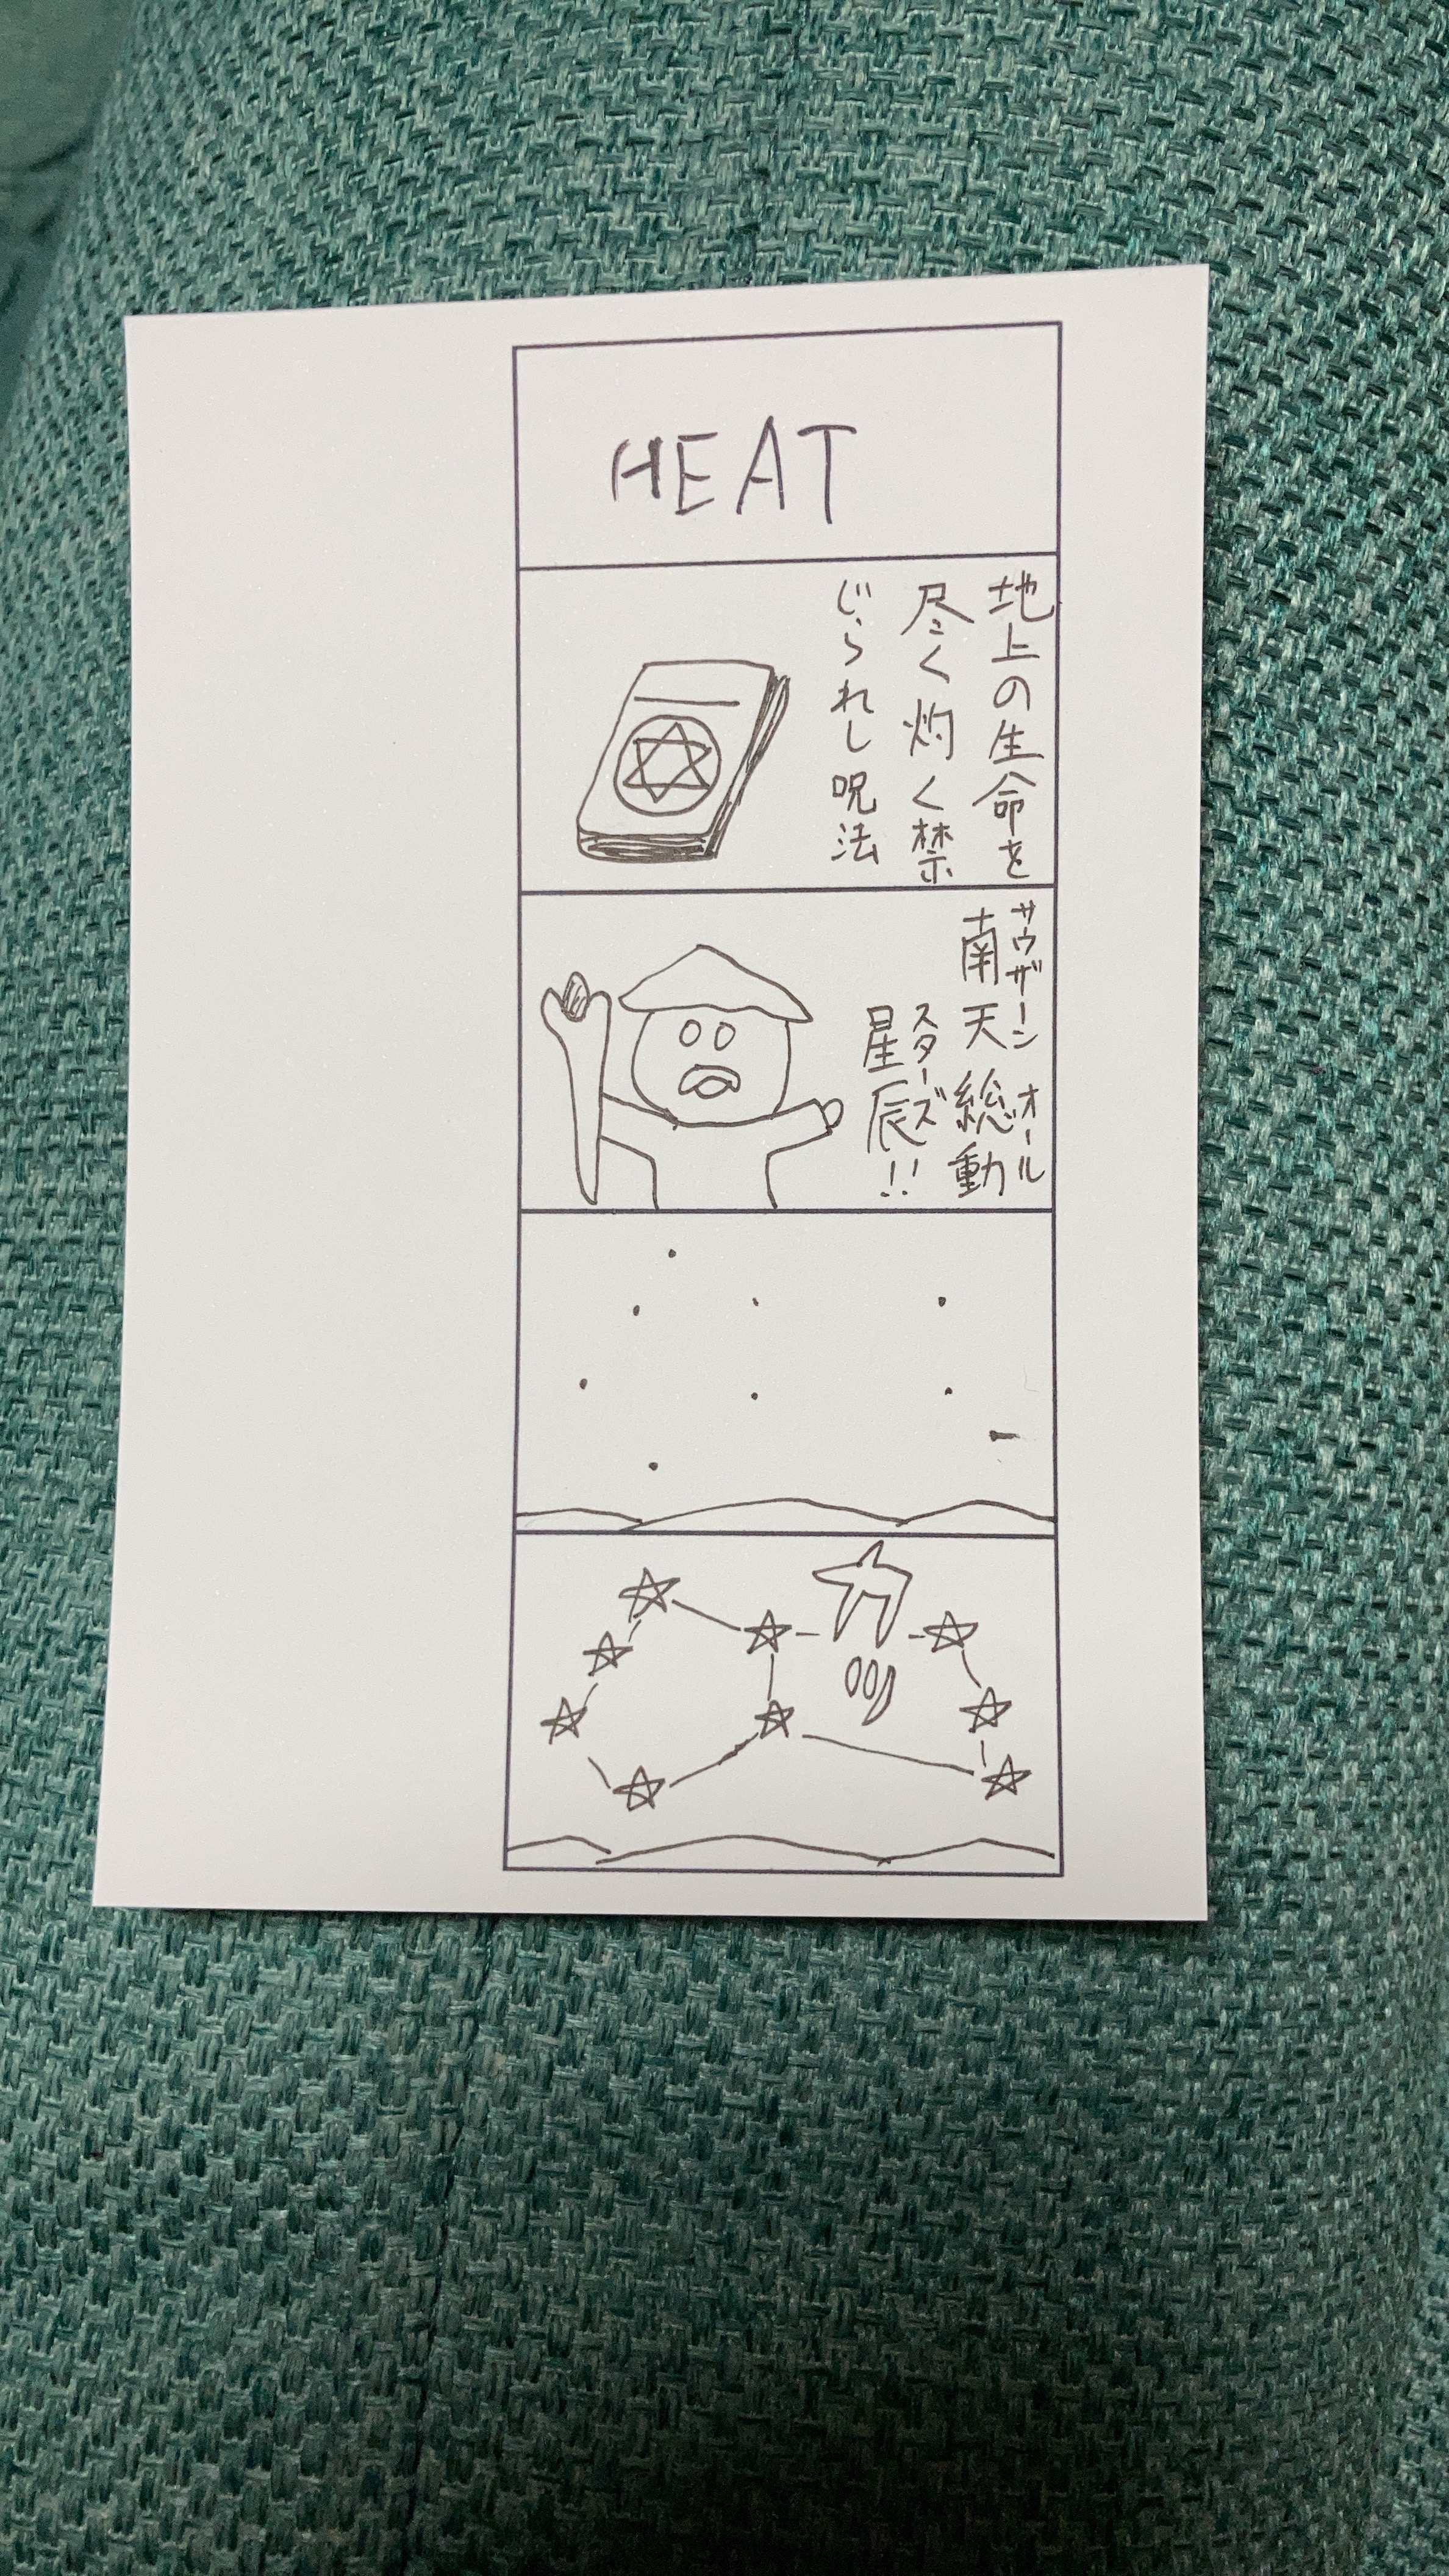 HEAT
地上の生命を
尽く灼く禁
じられし呪法
サウザーン オール
南天総動
スターズ
星辰!!
カッ